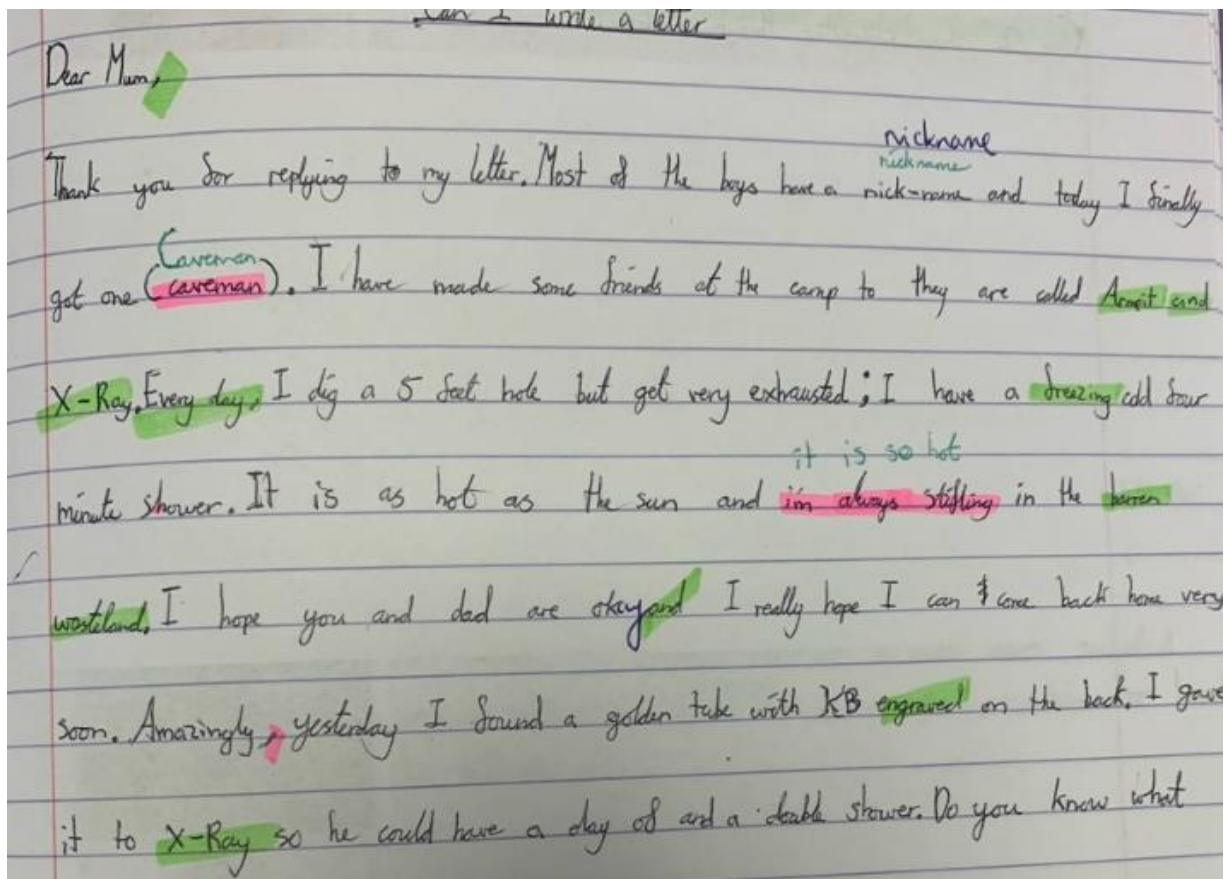 Can I write a letter
Dear Mum,
nickname
nickname
Thank you for replying to my letter. Most of the boys have a nick-name and today I finally
Caveman
got one (caveman). I have made some friends at the camp to they are called Armpit and
X-Ray. Every day, I dig a 5 feet hole but get very exhausted; I have a freezing cold four
it is so hot
minute shower. It is as hot as the sun and i'm always stifling in the barren
wasteland. I hope you and dad are okay and I really hope I can come back home very
soon. Amazingly, yesterday I found a golden tube with KB engraved on the back. I gave
it to X-Ray so he could have a day of and a double shower. Do you know what